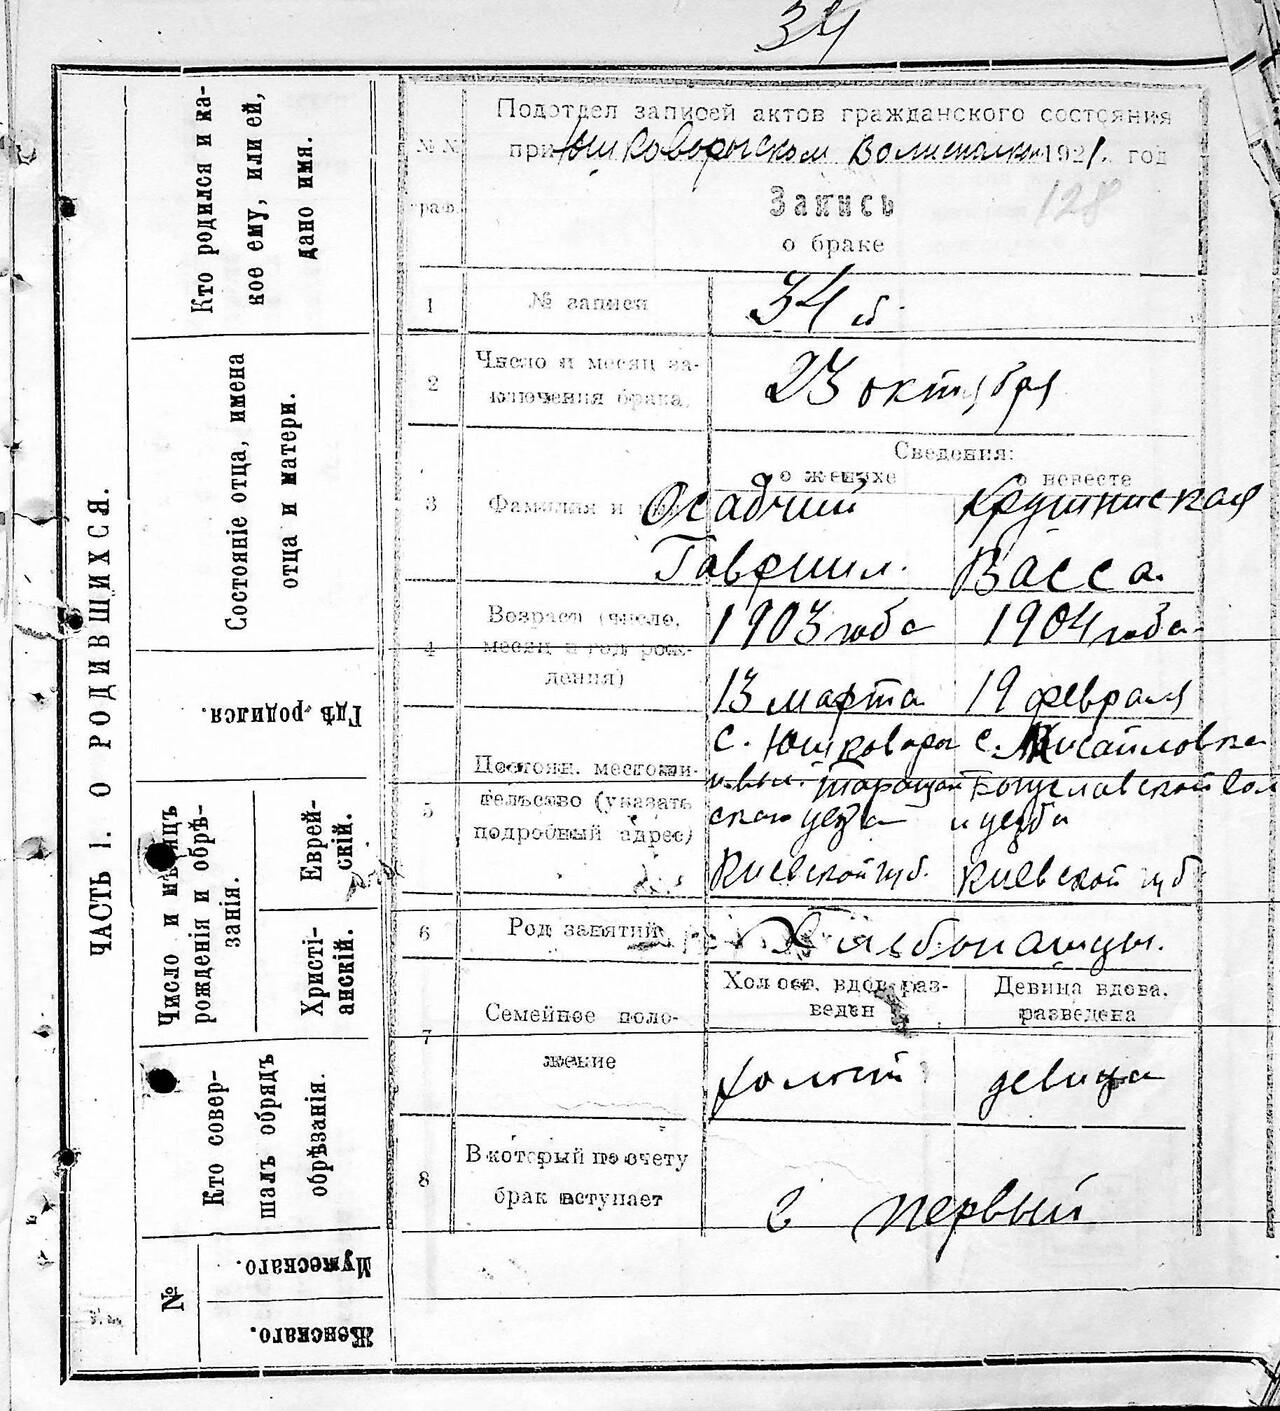 34
ЧАСТЬ I. О РОДИВШИХСЯ.
Кто родился и ка-
кое ему, или ей,
дано имя.
Состояніе отца, имена
отца и матери.
Гдѣ родился.
Число и мѣсяцъ
рожденія и обрѣ-
занія.
Еврей-
скій.
Христі-
анскій.
Кто совер-
шалъ обрядъ
обрѣзанія.
№
Мужескаго.
Женскаго.
№№
граф.
Подотдел записей актов гражданского состояния
при Юшковорогском 1921. год
Запись
128
о браке
1
№ записи
34
2
Число и месяц за-
ключения брака.
23 октября
Сведения:
о женихе
о невесте
3
Фамилия и
Осадчий
Гавриил.
Васса.
4
Возраст (число,
месяц и год рож-
дения)
1903 года
13 марта
1904 года
19 февраля
5
Постоян. местожи-
тельство (указать
подробный адрес)
с. Юшковорог
ского уезда
Киевской губ.
с. Исайловка
Богуславской вол
и уезда
Киевской губ
6
Род занятий
Хлебопашцы.
7
Семейное поло-
жение
Холост, вдов, раз-
веден
Девица вдова,
разведена
холост
девица
8
В который по счету
брак вступает
в первый